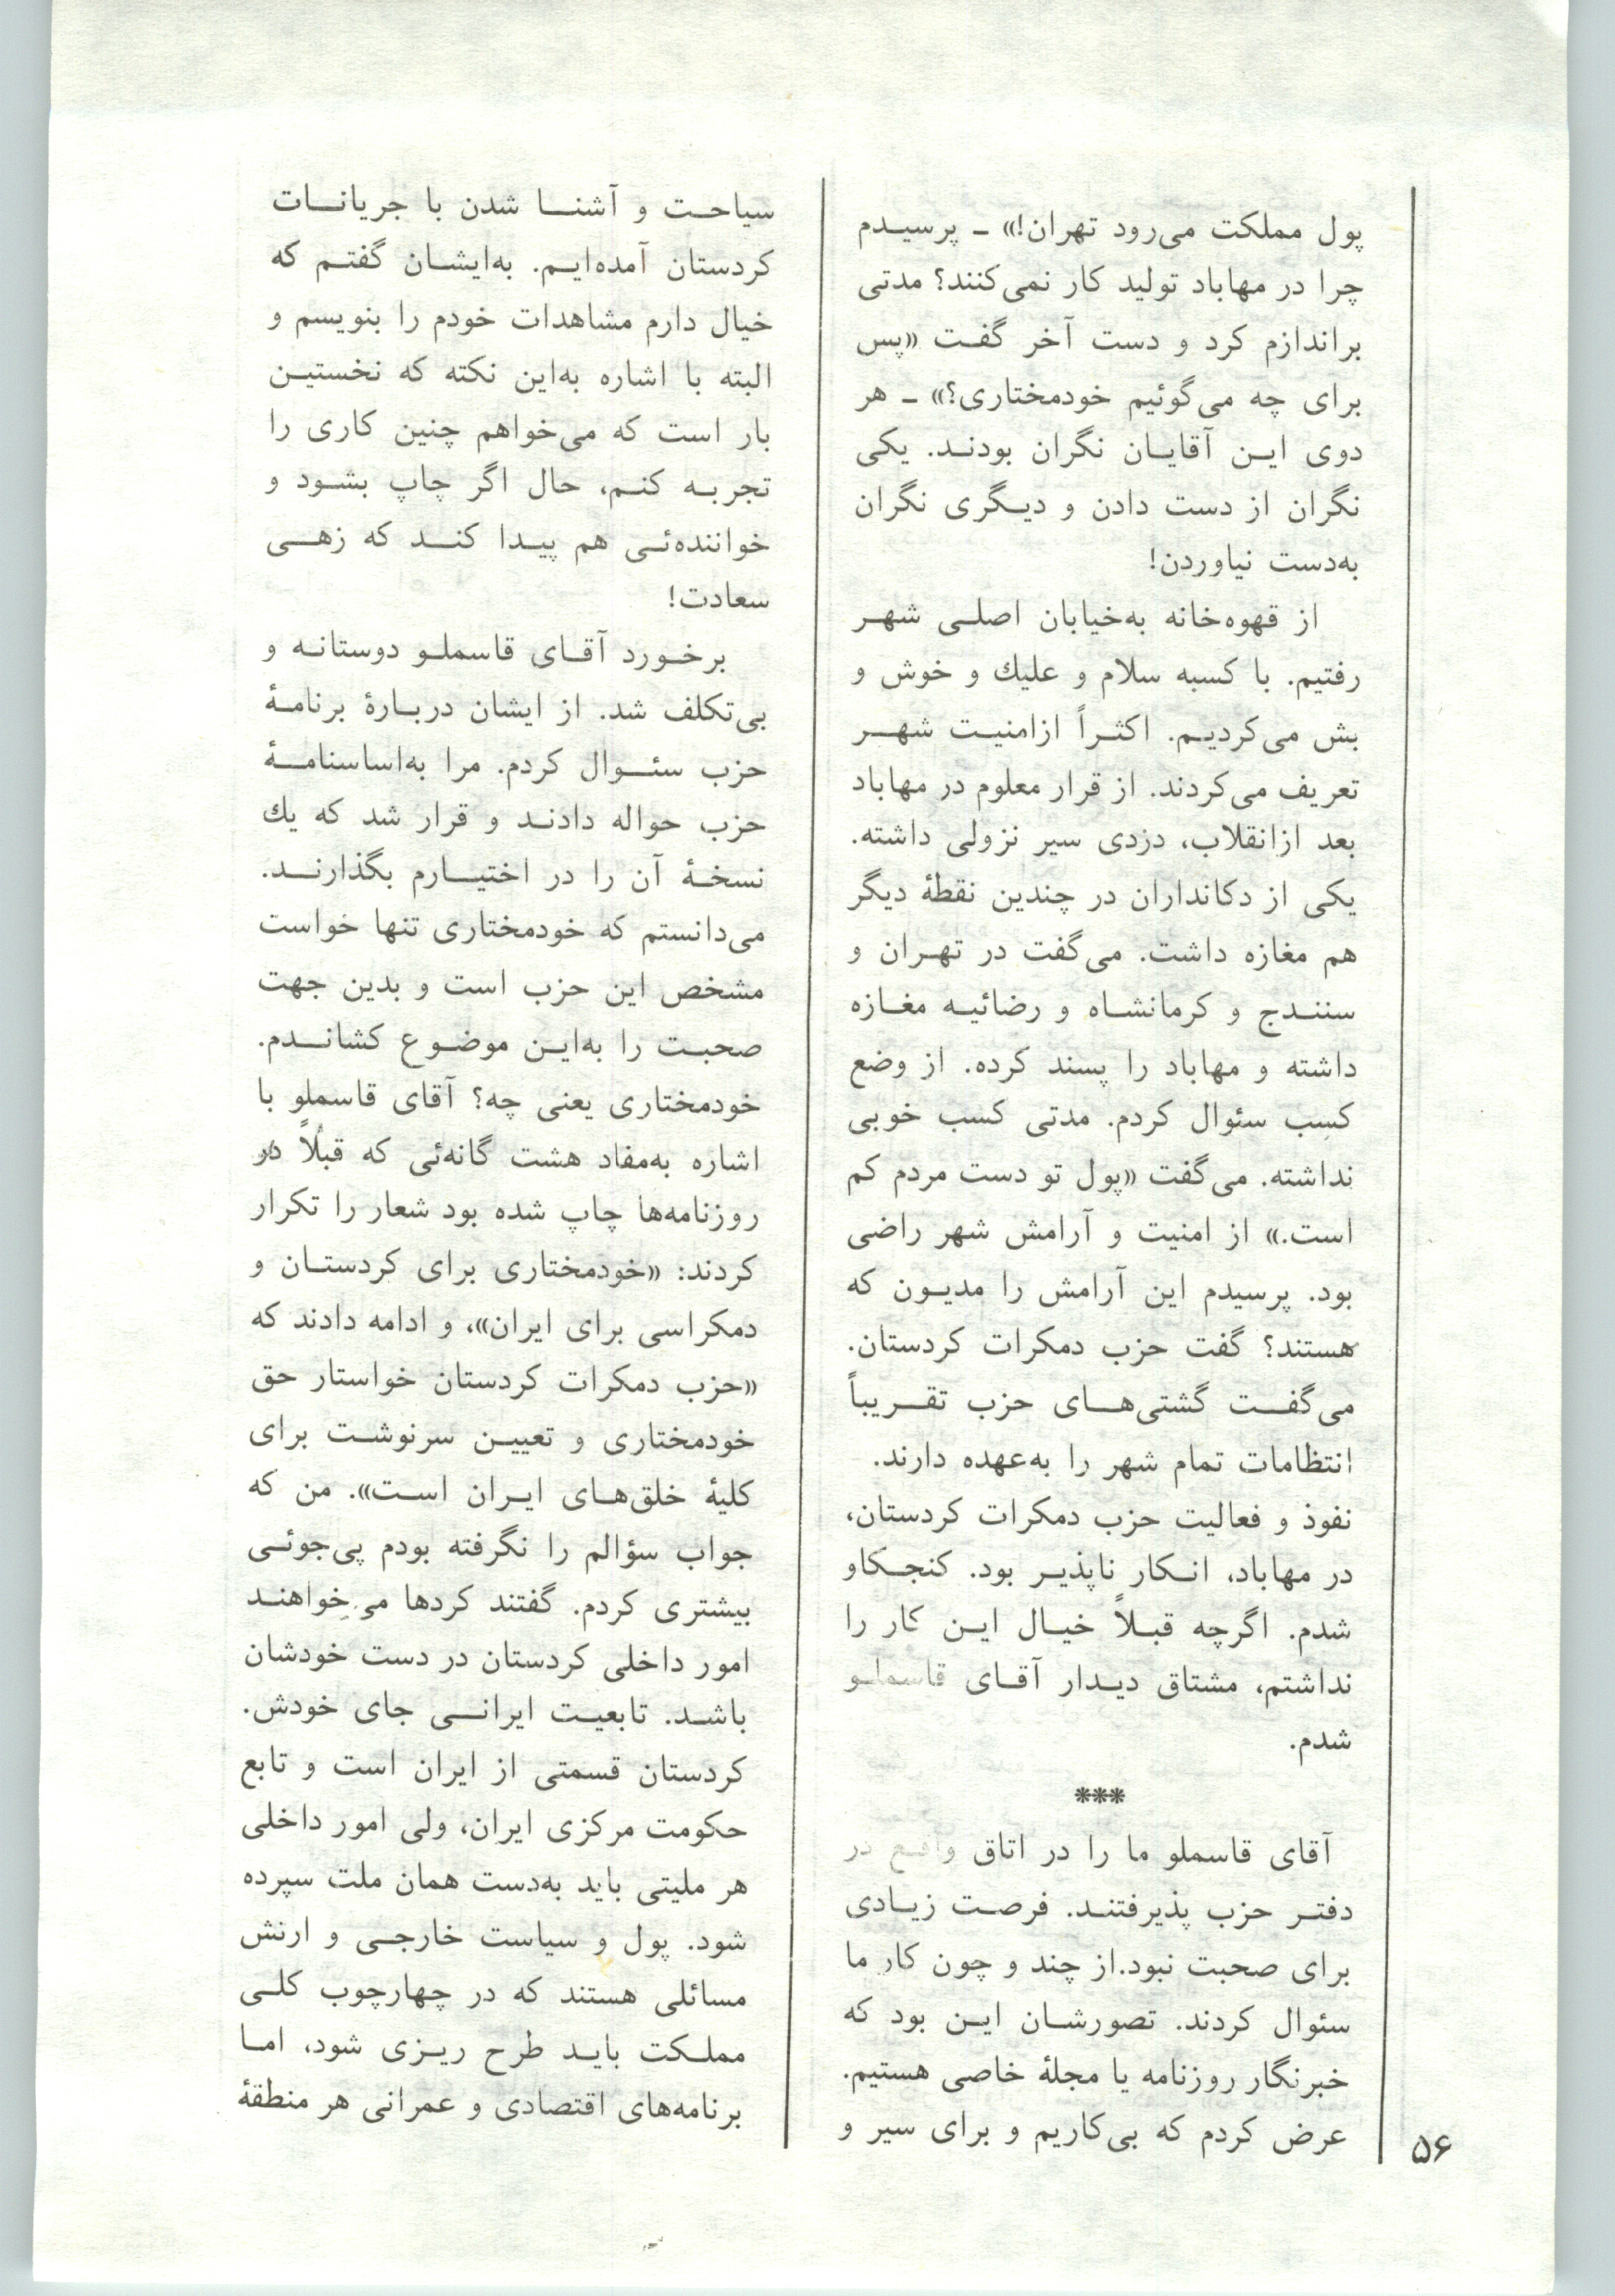 پول مملکت می‌رود تهران!» ـ پرسیدم
چرا در مهاباد تولید کار نمی‌کنند؟ مدتی
براندازم کرد و دست آخر گفت «پس
برای چه می‌گوئیم خودمختاری؟» ـ هر
دوی این آقایان نگران بودند. یکی
نگران از دست دادن و دیگری نگران
به‌دست نیاوردن!
از قهوه‌خانه به‌خیابان اصلی شهر
رفتیم. با کسبه سلام و علیك و خوش و
بش می‌کردیم. اکثراً ازامنیت شهر
تعریف می‌کردند. از قرار معلوم در مهاباد
بعد ازانقلاب، دزدی سیر نزولی داشته.
یکی از دکانداران در چندین نقطهٔ دیگر
هم مغازه داشت. می‌گفت در تهران و
سنندج و کرمانشاه و رضائیه مغازه
داشته و مهاباد را پسند کرده. از وضع
کسب سئوال کردم. مدتی کسب خوبی
نداشته. می‌گفت «پول تو دست مردم کم
است.» از امنیت و آرامش شهر راضی
بود. پرسیدم این آرامش را مدیون که
هستند؟ گفت حزب دمکرات کردستان.
می‌گفت گشتی‌های حزب تقریباً
انتظامات تمام شهر را به‌عهده دارند.
نفوذ و فعالیت حزب دمکرات کردستان،
در مهاباد، انکار ناپذیر بود. کنجکاو
شدم. اگرچه قبلاً خیال این کار را
نداشتم، مشتاق دیدار آقای قاسملو
شدم.
***
آقای قاسملو ما را در اتاق واقع در
دفتر حزب پذیرفتند. فرصت زیادی
برای صحبت نبود.از چند و چون کار ما
سئوال کردند. تصورشان این بود که
خبرنگار روزنامه یا مجلهٔ خاصی هستیم.
عرض کردم که بی‌کاریم و برای سیر و
سیاحت و آشنا شدن با جریانات
کردستان آمده‌ایم. به‌ایشان گفتم که
خیال دارم مشاهدات خودم را بنویسم و
البته با اشاره به‌این نکته که نخستین
بار است که می‌خواهم چنین کاری را
تجربه کنم، حال اگر چاپ بشود و
خواننده‌ئی هم پیدا کند که زهی
سعادت!
برخورد آقای قاسملو دوستانه و
بی‌تکلف شد. از ایشان دربارهٔ برنامهٔ
حزب سئوال کردم. مرا به‌اساسنامهٔ
حزب حواله دادند و قرار شد که یك
نسخهٔ آن را در اختیارم بگذارند.
می‌دانستم که خودمختاری تنها خواست
مشخص این حزب است و بدین جهت
صحبت را به‌این موضوع کشاندم.
خودمختاری یعنی چه؟ آقای قاسملو با
اشاره به‌مفاد هشت گانه‌ئی که قبلاً در
روزنامه‌ها چاپ شده بود شعار را تکرار
کردند: «خودمختاری برای کردستان و
دمکراسی برای ایران»، و ادامه دادند که
«حزب دمکرات کردستان خواستار حق
خودمختاری و تعیین سرنوشت برای
کلیهٔ خلق‌های ایران است». من که
جواب سؤالم را نگرفته بودم پی‌جوئی
بیشتری کردم. گفتند کردها می‌خواهند
امور داخلی کردستان در دست خودشان
باشد. تابعیت ایرانی جای خودش.
کردستان قسمتی از ایران است و تابع
حکومت مرکزی ایران، ولی امور داخلی
هر ملیتی باید به‌دست همان ملت سپرده
شود. پول و سیاست خارجی و ارتش
مسائلی هستند که در چهارچوب کلی
مملکت باید طرح ریزی شود، اما
برنامه‌های اقتصادی و عمرانی هر منطقهٔ
۵۶